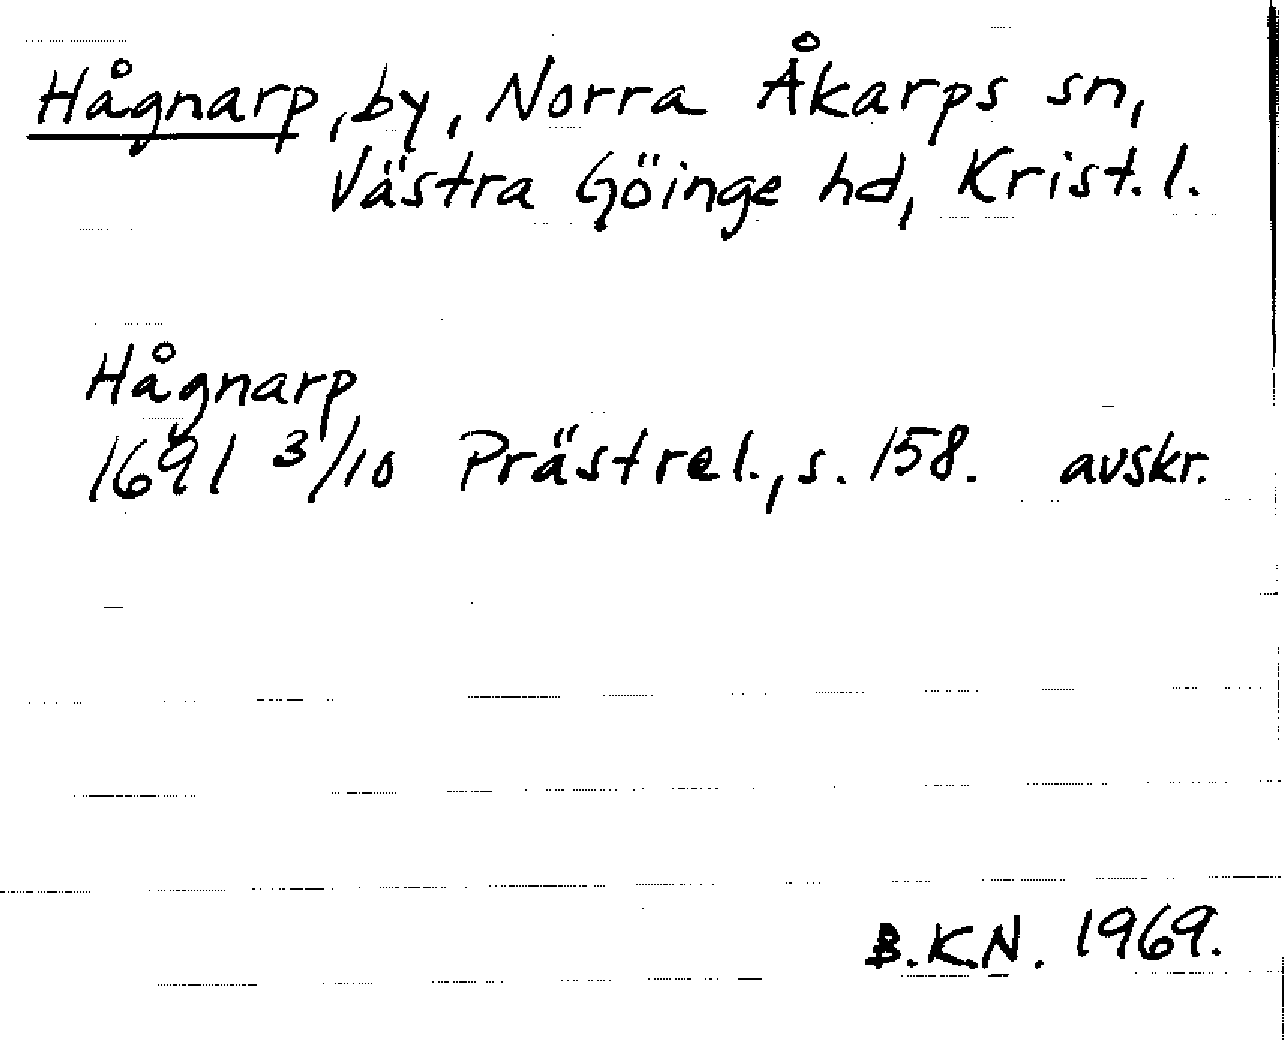 Hågnarp, by, Norra Åkarps sn,
Västra Göinge hd, Krist. l.
Hågnarp
1691 3/10 Prästrel., s. 158. avskr.
B.K.N. 1969.